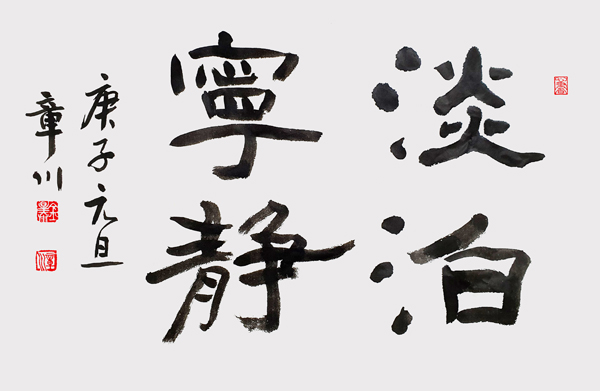 淡泊
寧静
庚子元旦
章川